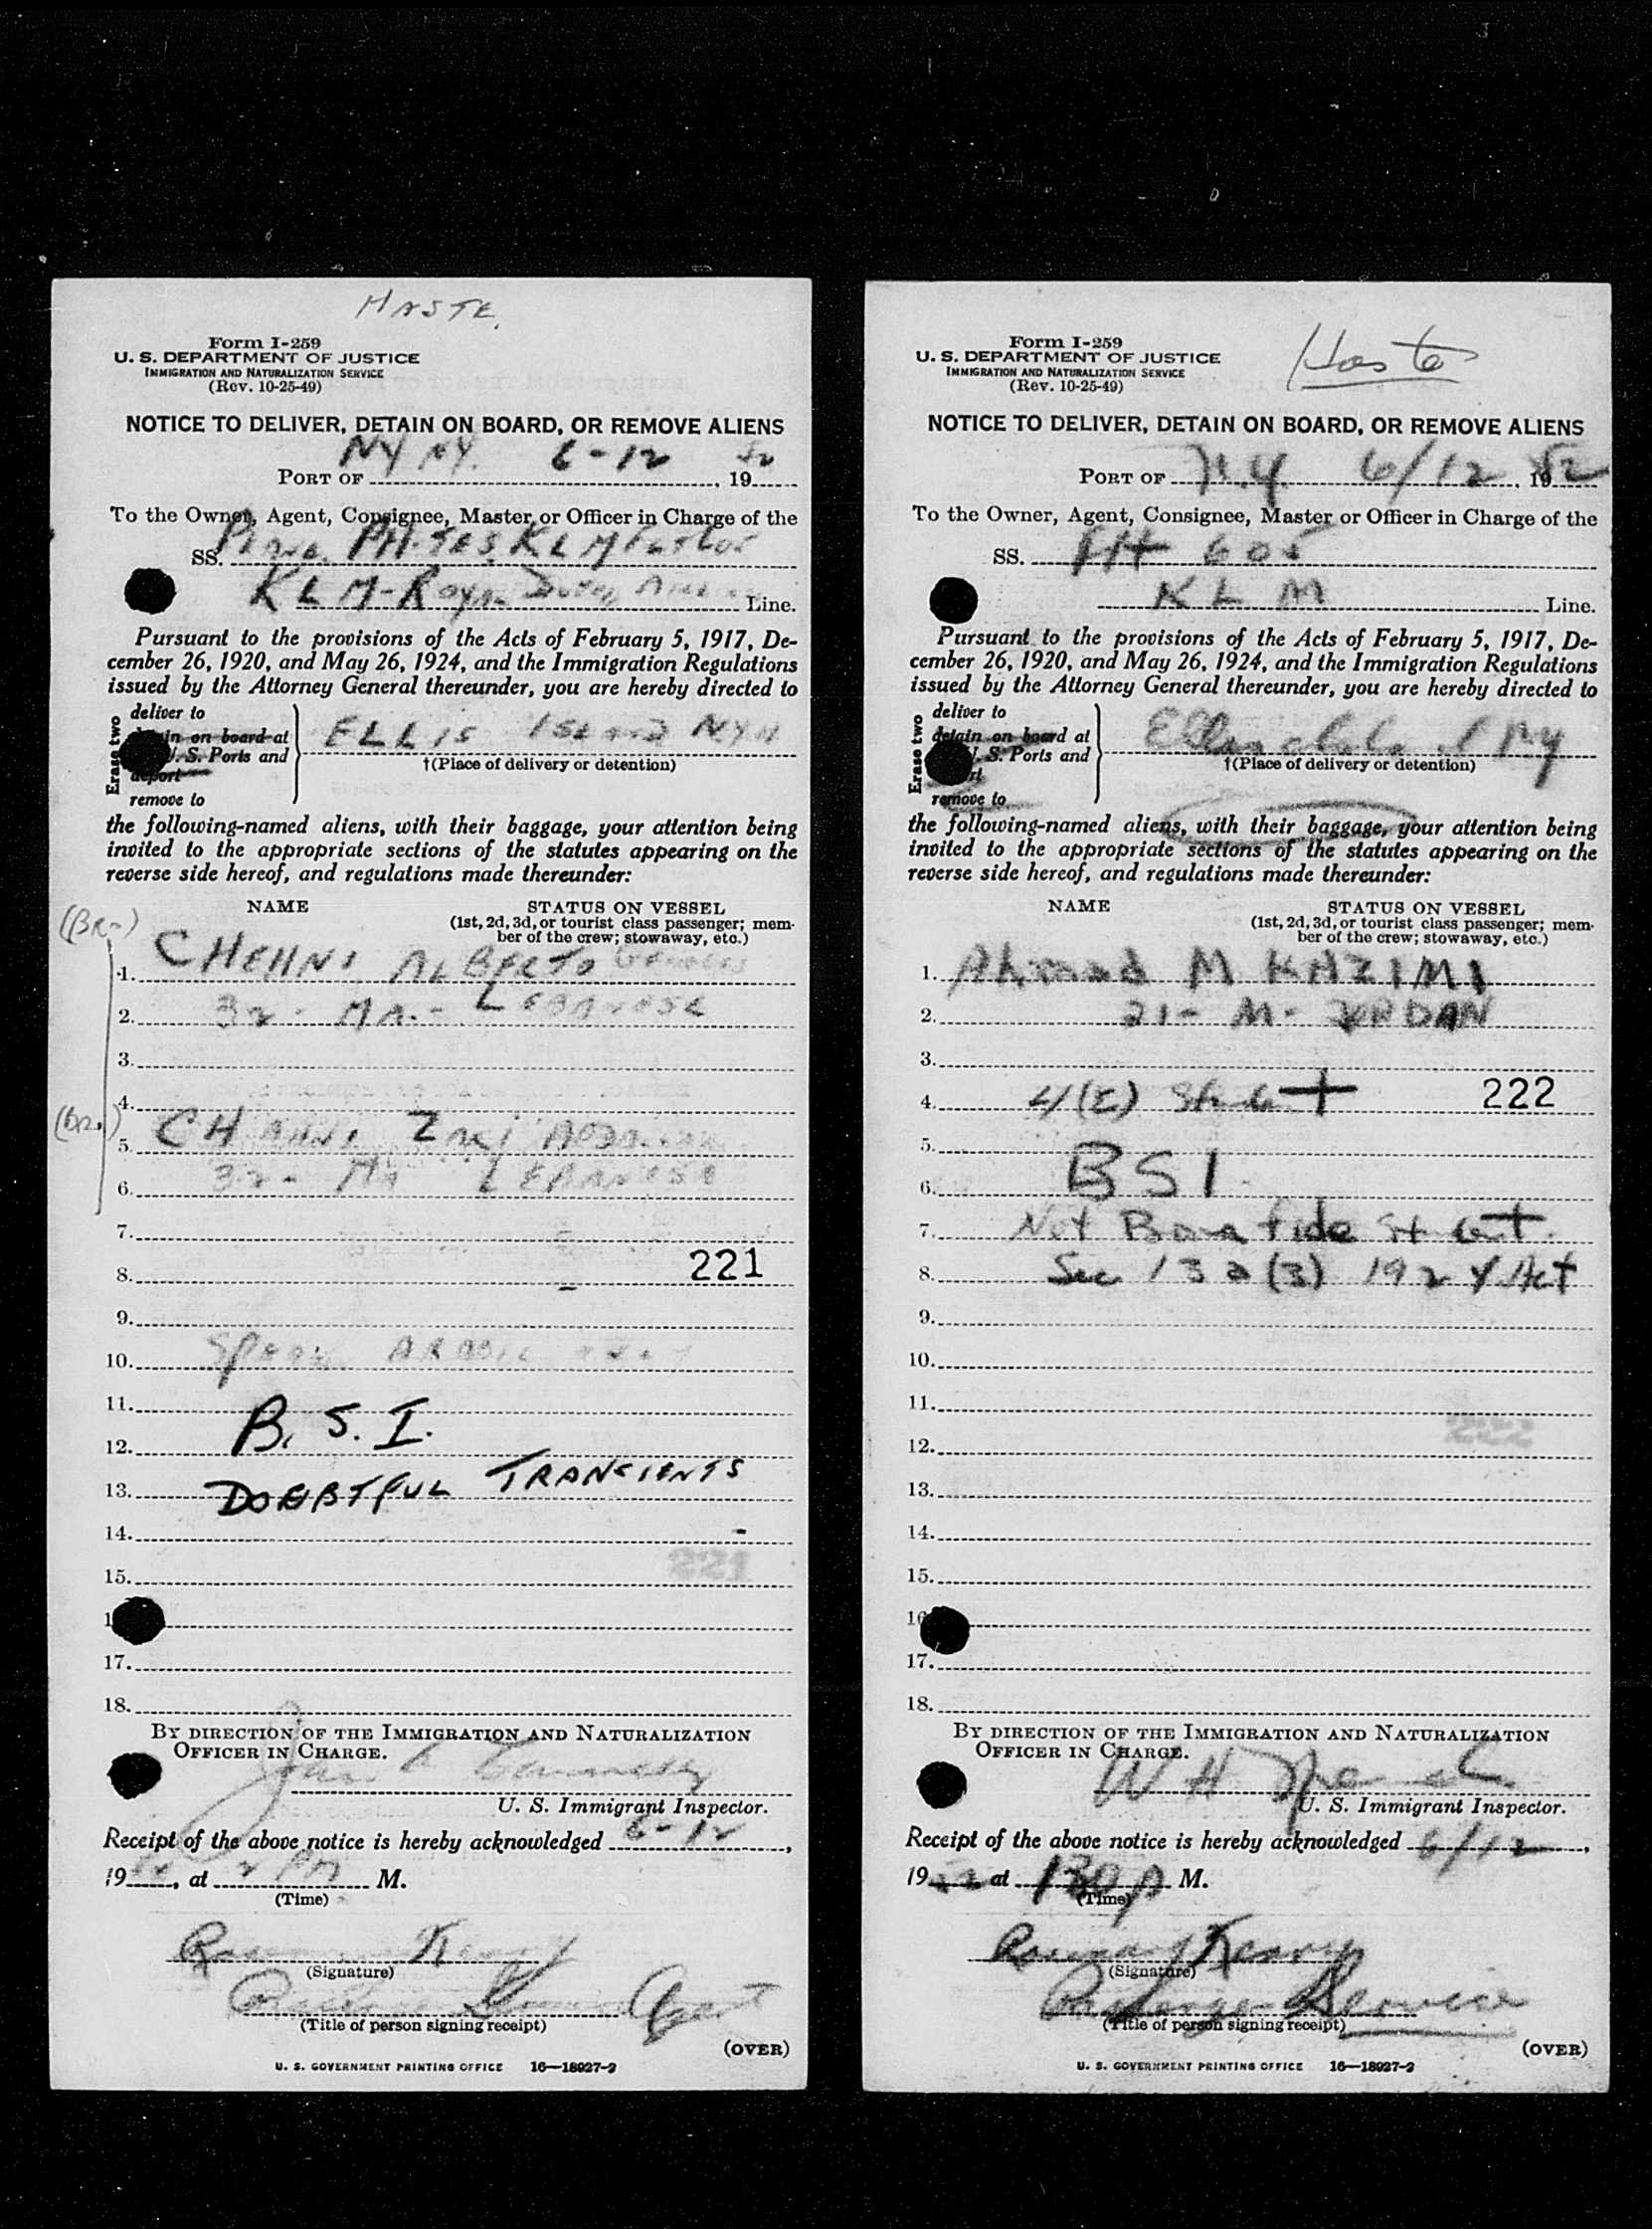 HASTE.
Form I-259
U. S. DEPARTMENT OF JUSTICE
IMMIGRATION AND NATURALIZATION SERVICE
(Rev. 10-25-49)
NOTICE TO DELIVER, DETAIN ON BOARD, OR REMOVE ALIENS
PORT OF NY NY. 6-12, 1952
To the Owner, Agent, Consignee, Master or Officer in Charge of the
SS. PH-TES KLM
KLM-Royal Dutch Line.
Pursuant to the provisions of the Acts of February 5, 1917, De-
cember 26, 1920, and May 26, 1924, and the Immigration Regulations
issued by the Attorney General thereunder, you are hereby directed to
Erase two
deliver to
on board at
U. S. Ports and
deport
remove to
ELLIS Island NYH
†(Place of delivery or detention)
the following-named aliens, with their baggage, your attention being
invited to the appropriate sections of the statutes appearing on the
reverse side hereof, and regulations made thereunder:
NAME
STATUS ON VESSEL
(1st, 2d, 3d, or tourist class passenger; mem-
ber of the crew; stowaway, etc.)
(BR-)
1. CHEHNI ALBERTO
2. 32 - MA. - LEBANESE
3.
4.
(BR.)
5. CHAHNI ZAKI
6. 32 - MA LEBANESE
7.
8. 221
9.
10. SPEAK ARABIC
11.
12. B. S. I.
13. DOUBTFUL TRANCIENTS
14.
15. 221
17.
18.
BY DIRECTION OF THE IMMIGRATION AND NATURALIZATION
OFFICER IN CHARGE.
U. S. Immigrant Inspector.
Receipt of the above notice is hereby acknowledged 6-12,
19 52, at 2 PM M.
(Time)
(Signature)
Agent
(Title of person signing receipt)
(OVER)
U. S. GOVERNMENT PRINTING OFFICE 16—18927-2
Haste
Form I-259
U. S. DEPARTMENT OF JUSTICE
IMMIGRATION AND NATURALIZATION SERVICE
(Rev. 10-25-49)
NOTICE TO DELIVER, DETAIN ON BOARD, OR REMOVE ALIENS
PORT OF N.Y. 6/12, 1952
To the Owner, Agent, Consignee, Master or Officer in Charge of the
SS. 605
KLM Line.
Pursuant to the provisions of the Acts of February 5, 1917, De-
cember 26, 1920, and May 26, 1924, and the Immigration Regulations
issued by the Attorney General thereunder, you are hereby directed to
Erase two
deliver to
detain on board at
U. S. Ports and
remove to
Ellis Island NY
†(Place of delivery or detention)
the following-named aliens, with their baggage, your attention being
invited to the appropriate sections of the statutes appearing on the
reverse side hereof, and regulations made thereunder:
NAME
STATUS ON VESSEL
(1st, 2d, 3d, or tourist class passenger; mem-
ber of the crew; stowaway, etc.)
1. Ahmad M KAZIMI
2. 21 - M - JORDAN
3.
4. 4(E) Student 222
5.
6. BSI
7. Not Bona fide Student.
8. Sec 13a(3) 1924 Act
9.
10.
11.
12. 222
13.
14.
15.
16
17.
18.
BY DIRECTION OF THE IMMIGRATION AND NATURALIZATION
OFFICER IN CHARGE.
W H
U. S. Immigrant Inspector.
Receipt of the above notice is hereby acknowledged 6/12,
19 52 at 130 p M.
(Time)
(Signature)
Passenger Service
(Title of person signing receipt)
(OVER)
U. S. GOVERNMENT PRINTING OFFICE 16—18927-2